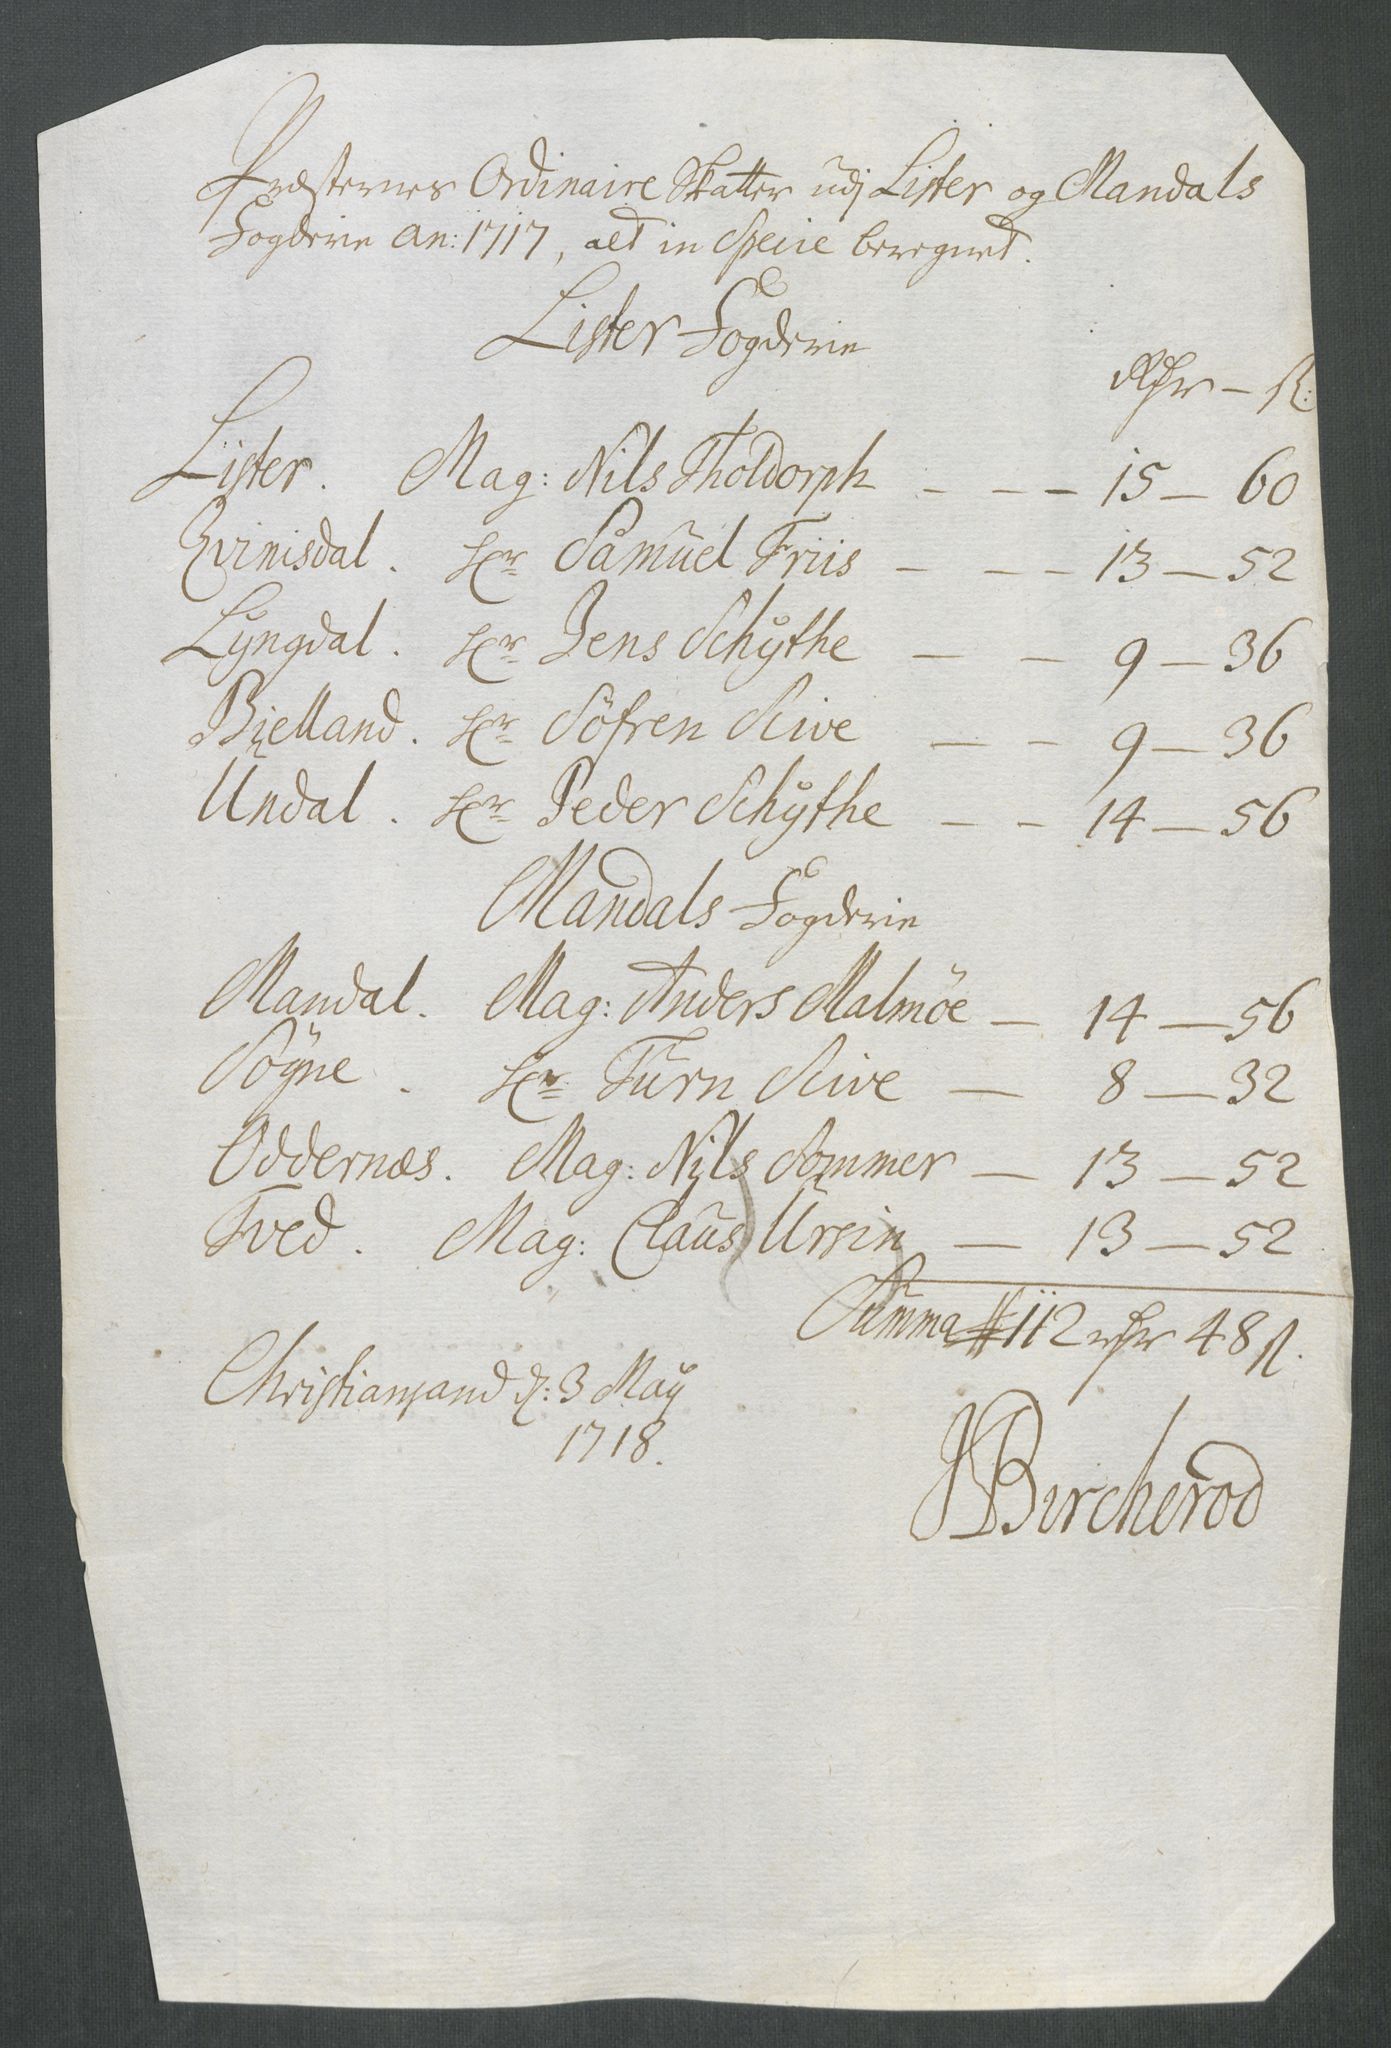 Præsternes Ordinaire Skatter udj Lister og Mandals
Fogderie An: 1717, alt in Specie beregnet.
Lister Fogderie
Rdr – ß:
Lister. Mag: Nils Tholdorph – – – 15 – 60
Qvinisdal. Hr Samuel Friis – – – 13 – 52
Lyngdal. Hr Jens Schythe – – 9 – 36
Bielland. Hr Söfren Scive – – 9 – 36
Undal. Hr Peder Schythe – – 14 – 56
Mandals Fogderie
Mandal. Mag: Anders Malmöe – 14 – 56
Sögne. Hr Turn Scive – 8 – 32
Oddernæs. Mag: Nils Sommer – 13 – 52
Tved. Mag: Claus Ursin – 13 – 52
Summa # 112 rdr 48 ß.
Christiansand d: 3 May
1718.
JBircherod